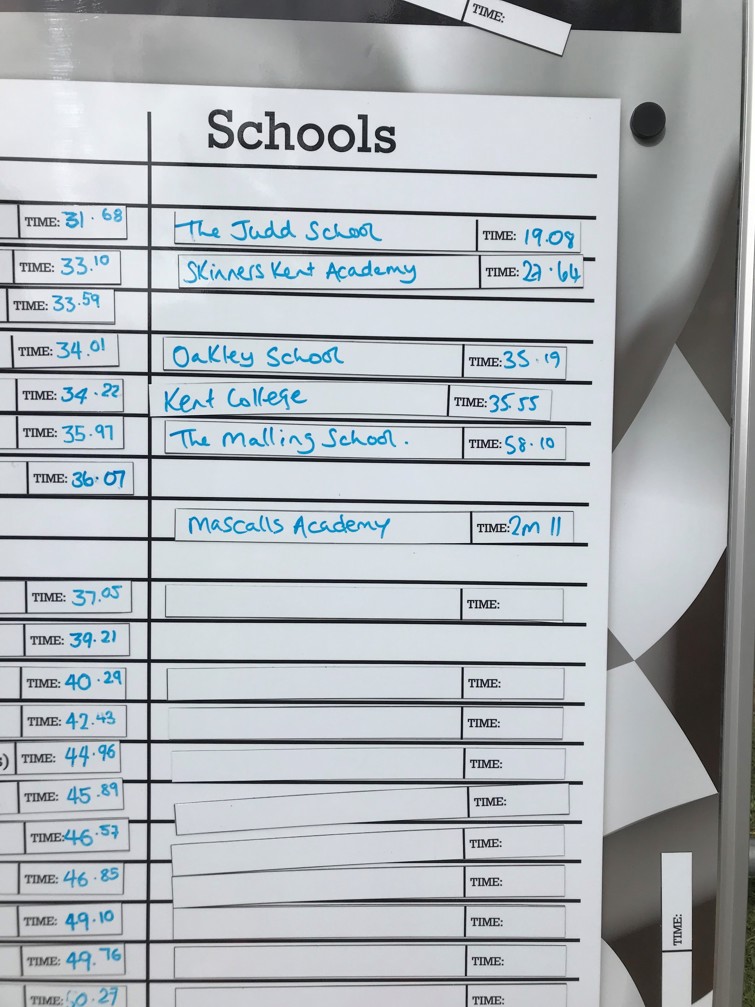 TIME:
Schools
TIME: 31.68
The Judd School TIME: 19.08
TIME: 33.10
Skinners Kent Academy TIME: 27.64
TIME: 33.59
TIME: 34.01
Oakley School TIME: 35.19
TIME: 34.22
Kent College TIME: 35.55
TIME: 35.97
The Malling School. TIME: 58.10
TIME: 36.07
Mascalls Academy TIME: 2m 11
TIME: 37.05
TIME:
TIME: 39.21
TIME: 40.29
TIME:
TIME: 42.43
TIME:
) TIME: 44.96
TIME:
TIME: 45.89
TIME:
TIME: 46.57
TIME:
TIME: 46.85
TIME:
TIME: 49.10
TIME:
TIME: 49.76
TIME:
TIME: 50.27
TIME:
TIME: